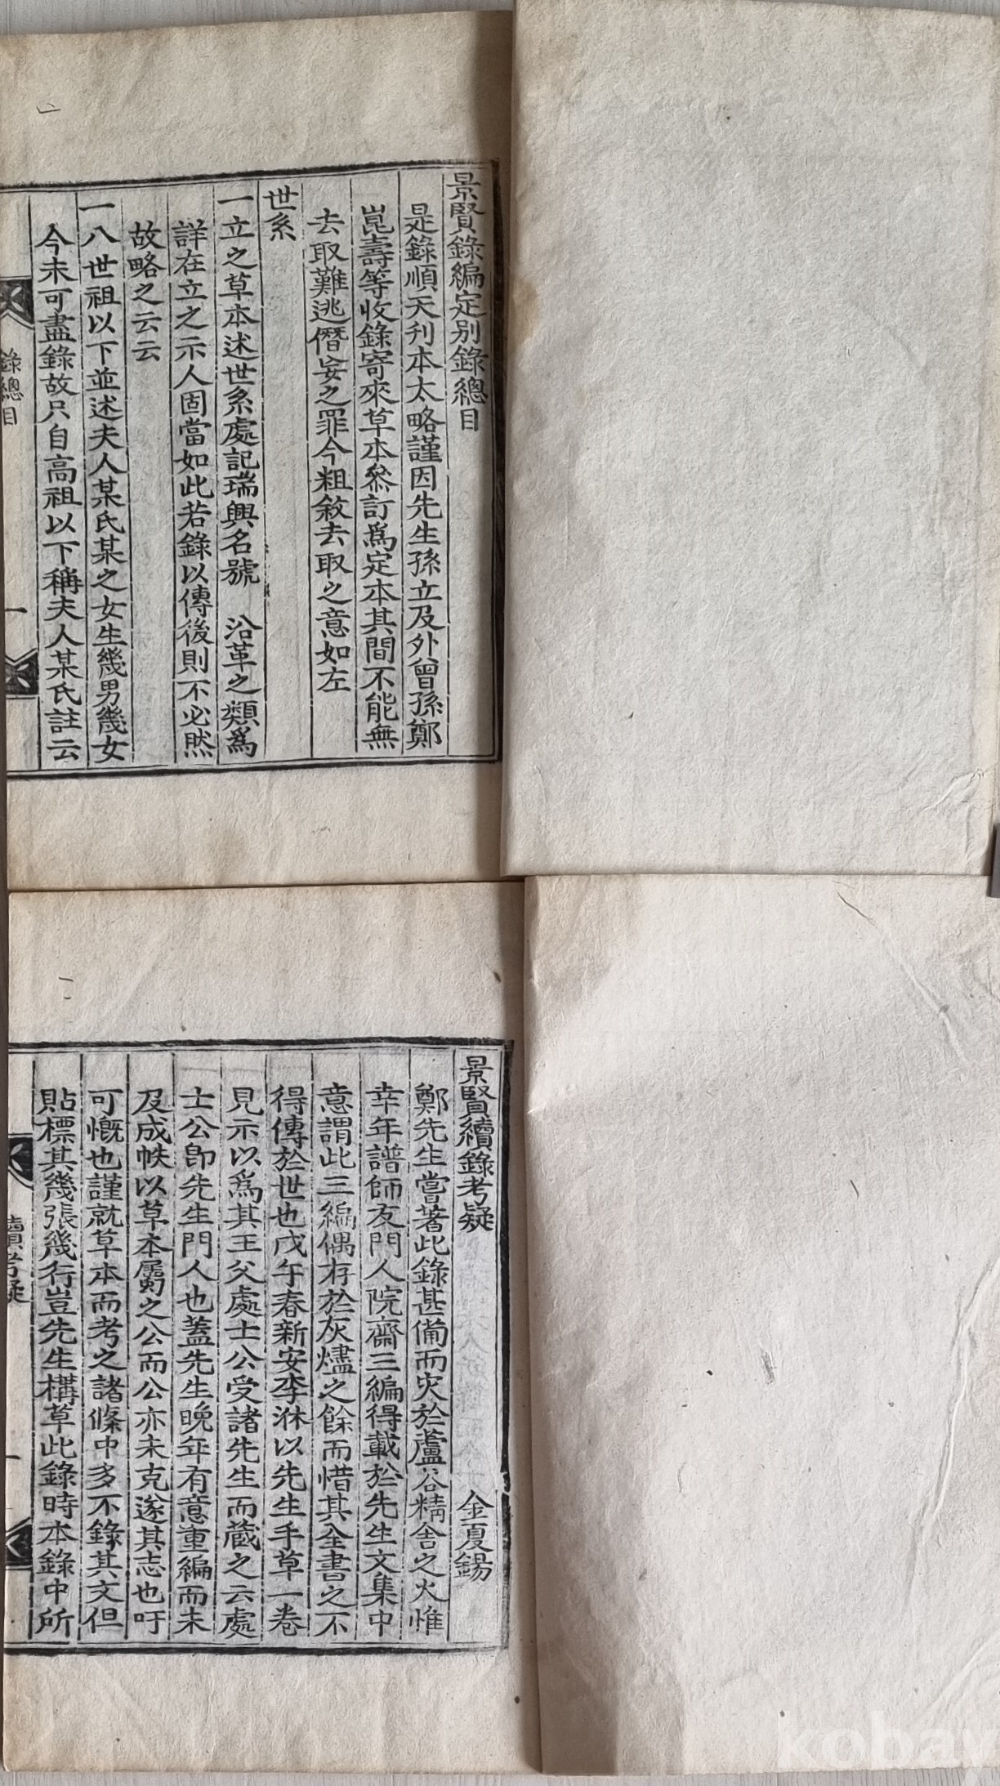 景賢錄編定別錄總目
是錄順天刊本太略謹因先生孫立及外曾孫鄭
崑壽等收錄寄來草本叅訂爲定本其間不能無
去取難逃僭妄之罪今粗敘去取之意如左
世系
一立之草本述世系處記瑞興名號 沿革之類爲
詳在立之示人固當如此若錄以傳後則不必然
故略之云云
一八世祖以下並述夫人某氏某之女生幾男幾女
今未可盡錄故只自高祖以下稱夫人某氏註云
錄總目
一
景賢續錄考疑
金夏鍚
鄭先生嘗著此錄甚備而灾於蘆谷精舍之火惟
幸年譜師友門人院齋三編得載於先生文集中
意謂此三編偶存於灰燼之餘而惜其全書之不
得傳於世也戊午春新安李洙以先生手草一卷
見示以爲其王父處士公受諸先生而藏之云處
士公卽先生門人也蓋先生晩年有意重編而未
及成帙以草本屬之公而公亦未克遂其志也吁
可慨也謹就草本而考之諸條中多不錄其文但
貼標其幾張幾行豈先生構草此錄時本錄中所
續考疑
一
kobay